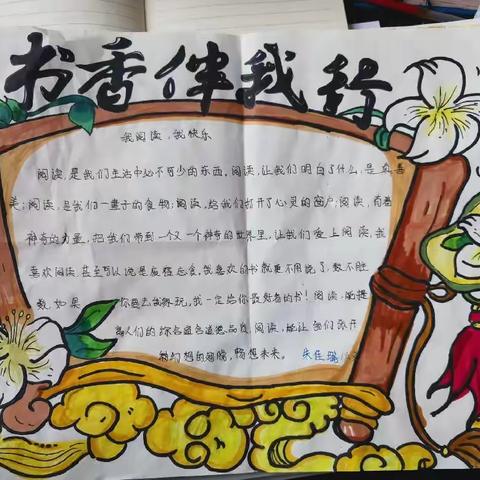 书香伴我行
我阅读，我快乐
阅读，是我们生活中必不可少的东西，阅读，让我们明白了什么，是真善
美；阅读，是我们一辈子的食物；阅读，给我们打开了心灵的窗户；阅读，有着
神奇的力量，把我们带到一个又一个神奇的世界里，让我们爱上阅读，我
喜欢阅读，甚至可以说是废寝忘食，我喜欢的书就更不用说了，数不胜
数，如果你想去我家玩，我一定给你最好看的书！阅读，能提
高人们的综合道德品质，阅读，能让我们张开
梦幻想的翅膀，畅想未来。 朱佳